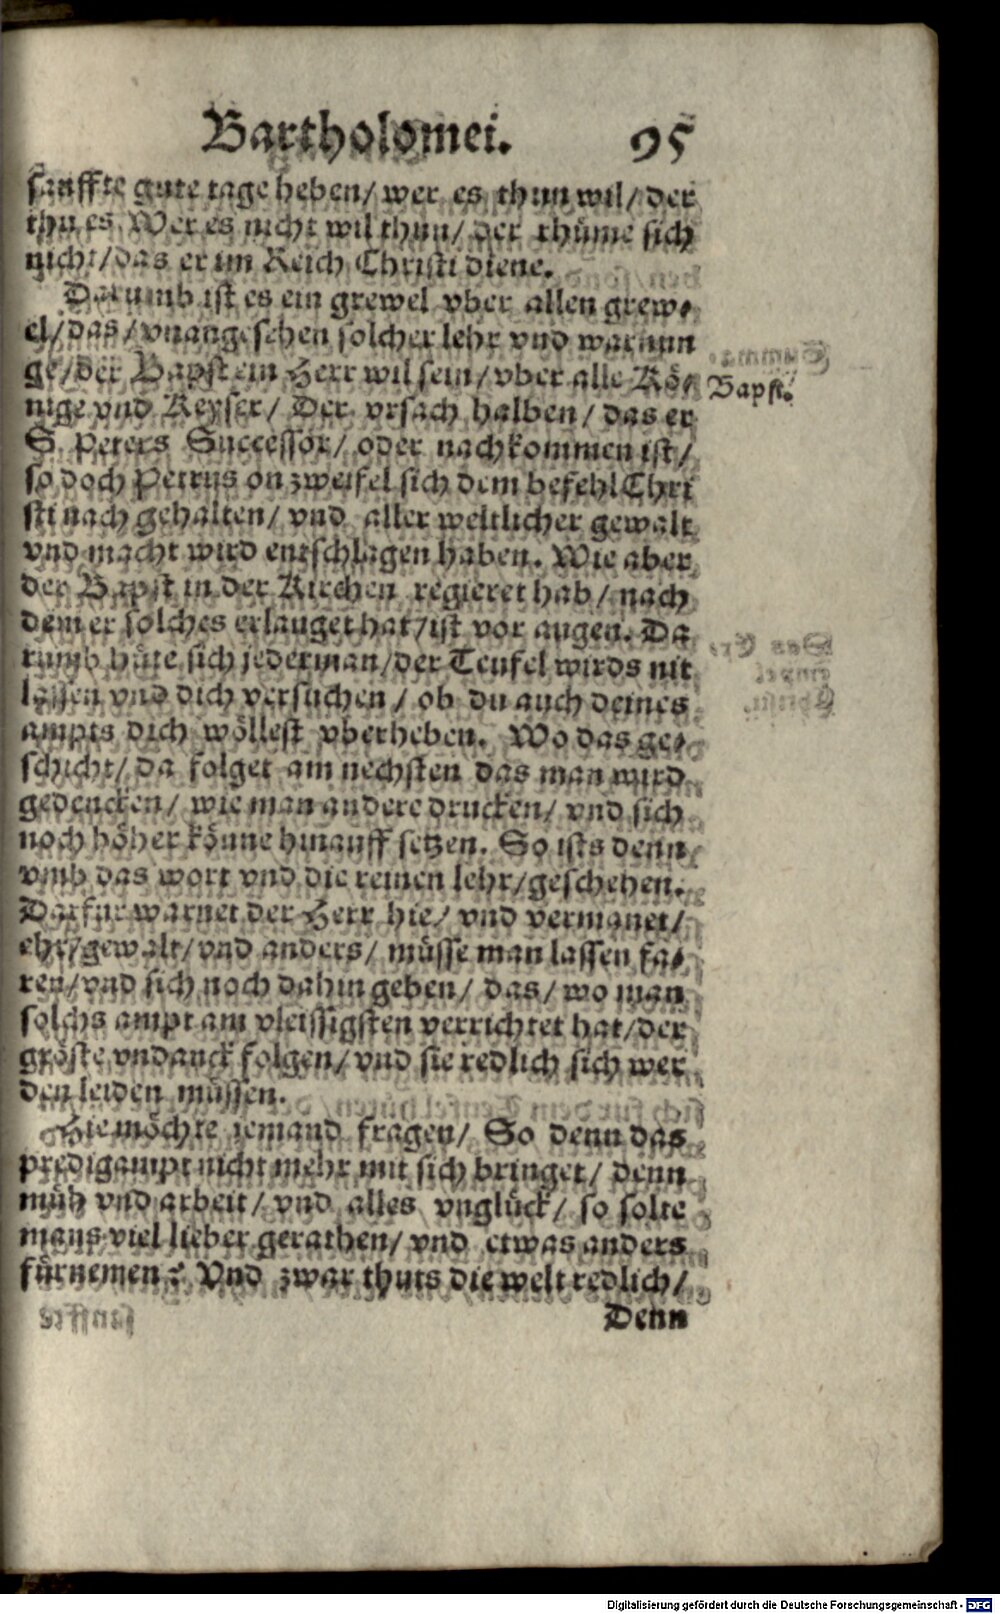 Bartholomei. 95
sanffte gute tage heben/ wer es thun wil/ der
thu es. Wer es nicht wil thun/ der rhüme sich
nicht/ das er im Reich Christi diene.
Darumb ist es ein grewel vber allen grew-
el/ das/ vnangesehen solcher lehr vnd warnun
ge/ der Bapst ein Herr wil sein/ vber alle Kö-
nige vnd Keyser/ Der vrsach halben/ das er
S. Peters Successor/ oder nachkommen ist/
so doch Petrus on zweifel sich dem befehl Chri
sti nach gehalten/ vnd aller weltlicher gewalt
vnd macht wird entschlagen haben. Wie aber
der Bapst in der Kirchen regieret hab/ nach
dem er solches erlanget hat/ ist vor augen. Da
rumb hüte sich jederman/ der Teufel wirds nit
lassen vnd dich versuchen/ ob du auch deines
ampts dich wöllest vberheben. Wo das ge-
schicht/ da folget am nechsten das man wird
gedencken/ wie man andere drucken/ vnd sich
noch höher könne hinauff setzen. So ists denn
vmb das wort vnd die reinen lehr/ geschehen.
Darfur warnet der Herr hie/ vnd vermanet/
ehr/ gewalt/ vnd anders/ müsse man lassen fa-
ren/ vnd sich noch dahin geben/ das/ wo man
solchs ampt am vleissigsten verrichtet hat/ der
gröste vndanck folgen/ vnd sie redlich sich wer
den leiden müssen.
Hie möchte jemand fragen/ So denn das
predigampt nicht mehr mit sich bringet/ denn
müh vnd arbeit/ vnd alles vnglück/ so solte
mans viel lieber gerathen/ vnd etwas anders
fürnemen? Vnd zwar thuts die welt redlich/
Denn
Bapst.
Digitalisierung gefördert durch die Deutsche Forschungsgemeinschaft - DFG